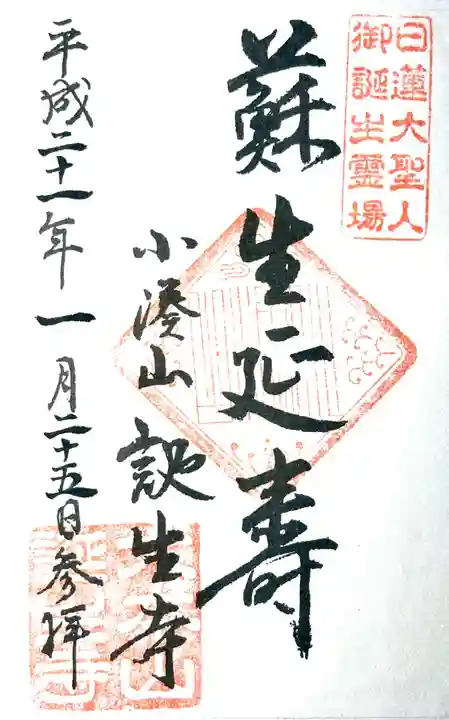 日蓮大聖人
御誕生霊場
蘇生延寿
小湊山
誕生寺
平成二十一年一月二十五日参拝